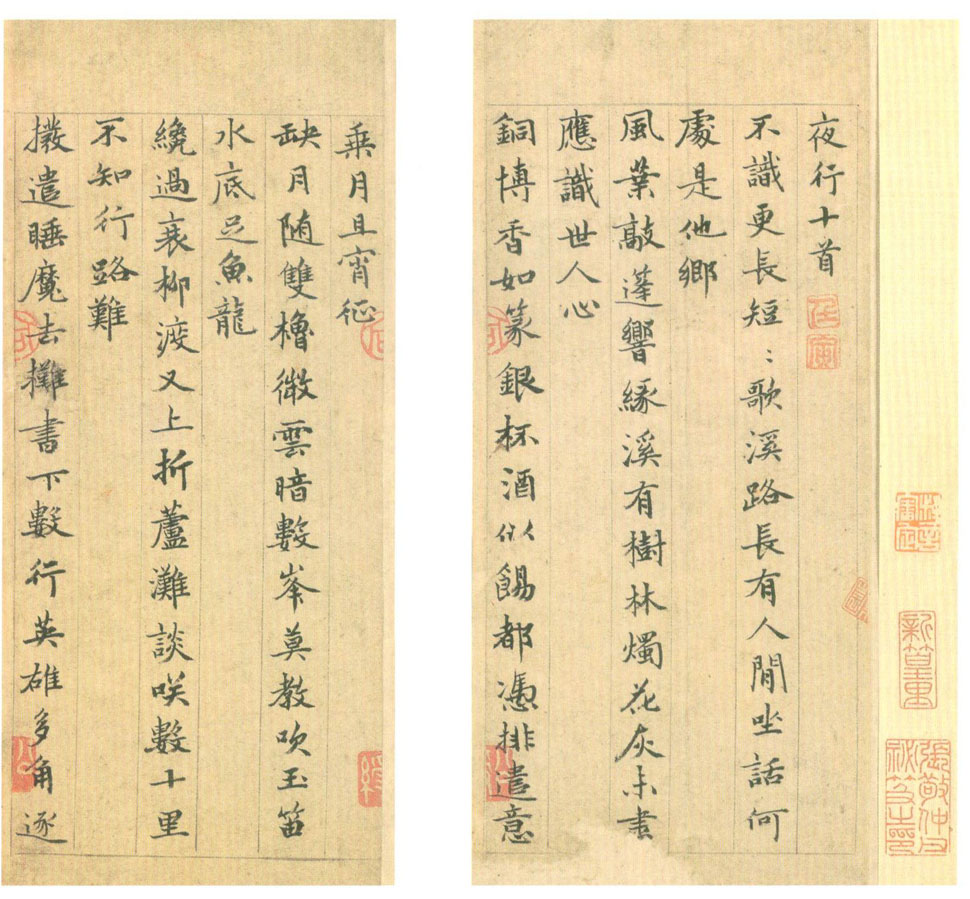 夜行十首
不識更長短：歌溪路長有人閒坐話何
處是他鄉
風葉敲蓬響緣溪有樹林燭花灰未盡
應識世人心
銅博香如篆銀杯酒似餳都憑排遣意
乘月且宵征
缺月随雙櫓微雲暗數峯莫教吹玉笛
水底足魚龍
繞過衰柳渡又上折蘆灘談咲數十里
不知行路難
撥遣睡魔去攤書下數行英雄多角逐